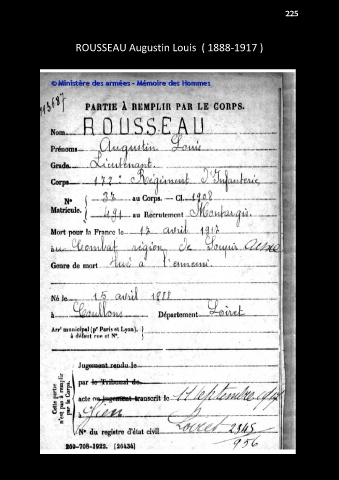 225
ROUSSEAU Augustin Louis ( 1888-1917 )
©Ministère des armées - Mémoire des Hommes
PARTIE À REMPLIR PAR LE CORPS.
Nom ROUSSEAU
Prénoms Augustin Louis
Grade Lieutenant.
Corps 172e Régiment d'Infanterie
N° 37 au Corps. — Cl. 1908
Matricule. 491 au Recrutement Montargis
Mort pour la France le 17 avril 1917
à au Combat région de Soupir Aisne
Genre de mort tué à l'ennemi
Né le 15 avril 1888
à Coullons Département Loiret
Arr' municipal (p' Paris et Lyon),
à défaut rue et N°.
Cette partie n'est pas à remplir par le Corps.
Jugement rendu le
par le Tribunal de
acte ou jugement transcrit le 11 septembre
à Gien
Loiret 2345
N° du registre d'état civil
956
260-708-1922. [26434]